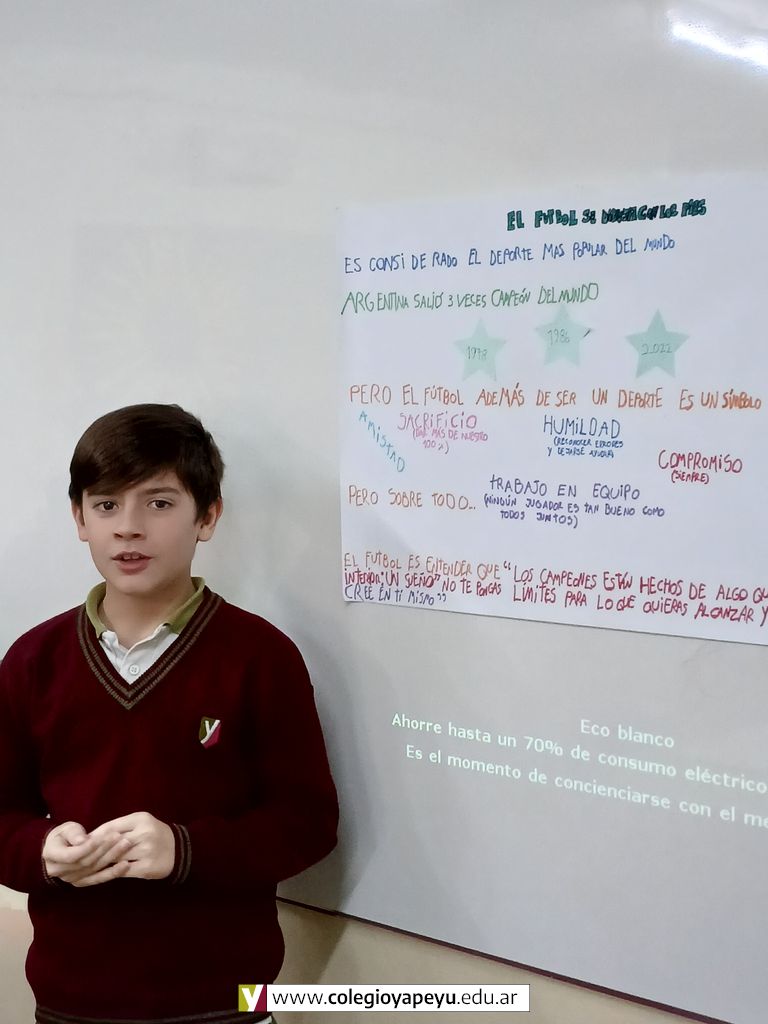 EL FÚTBOL SE CON LOS PIES
ES CONSIDERADO EL DEPORTE MAS POPULAR DEL MUNDO
ARGENTINA SALIÓ 3 VECES CAMPEÓN DEL MUNDO
1978 1986 2.022
PERO EL FÚTBOL ADEMÁS DE SER UN DEPORTE ES UN SÍMBOLO
AMISTAD
SACRIFICIO
(DAR MÁS DE NUESTRO
100%)
HUMILDAD
(RECONOCER ERRORES
Y DEJARSE AYUDAR)
COMPROMISO
(SIEMPRE)
PERO SOBRE TODO...
TRABAJO EN EQUIPO
(NINGÚN JUGADOR ES TAN BUENO COMO
TODOS JUNTOS)
EL FUTBOL ES ENTENDER QUE "LOS CAMPEONES ESTÁN HECHOS DE ALGO QU
INTERIOR; UN SUEÑO" NO TE PONGAS LÍMITES PARA LO QUE QUIERAS ALCANZAR Y
CREE EN TI MISMO"
Eco blanco
Ahorre hasta un 70% de consumo eléctrico
Es el momento de concienciarse con el me
y
y www.colegioyapeyu.edu.ar